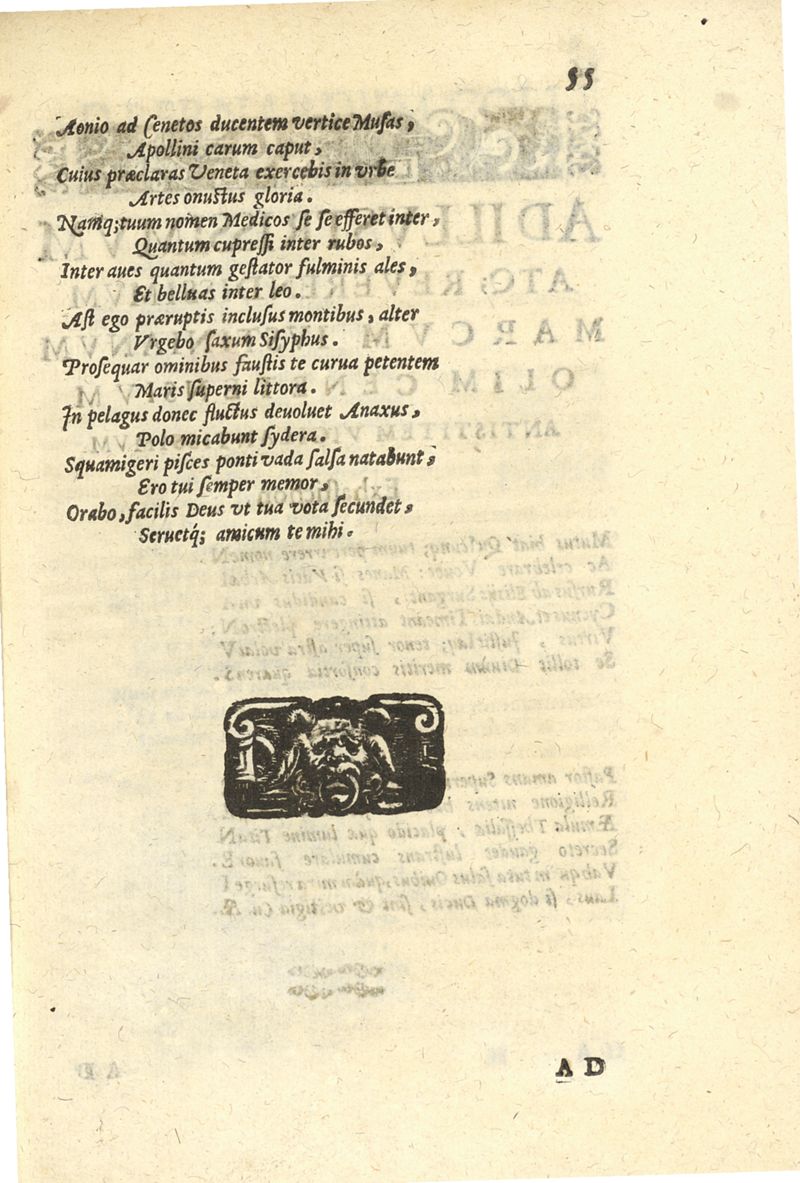 55
Aonio ad ſenetos ducentem vertice Muſas,
Apollini carum caput,
Cuius præclaras Veneta exercebis in vrbe
Artes onuctus gloria.
Namq; tuum nomen Medicos ſe ſe efferet inter,
Quantum cupreſſi inter rubos,
Inter aues quantum geſtator fulminis ales,
Et belluas inter leo.
Aſt ego præruptis incluſus montibus, alter
Vrgebo ſaxum Siſyphus.
Proſequar ominibus fauſtis te curua petentem
Maris ſuperni littora.
In pelagus donec fluctus deuoluet Anaxus,
Polo micabunt ſydera.
Squamigeri piſces ponti vada ſalſa natabunt,
Ero tui ſemper memor,
Orabo, facilis Deus vt tua vota ſecundet,
Seruetq́; amicum te mihi.
A D